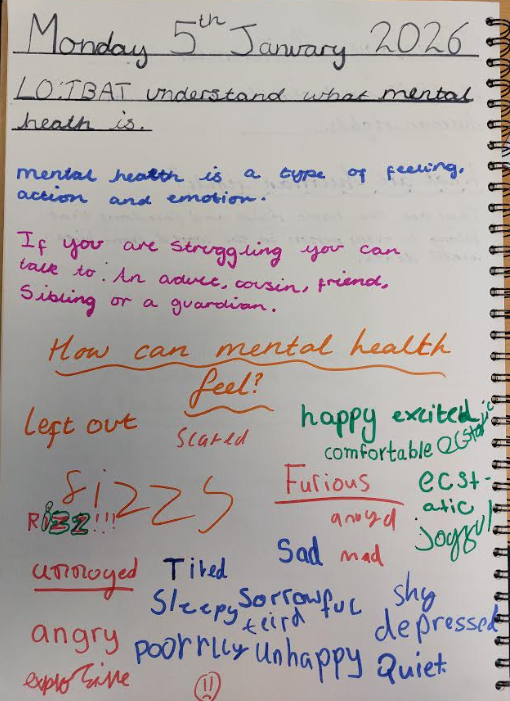 Monday 5th January 2026
LO:TBAT understand what mental
heath is.
mental health is a type of feeling,
action and emotion.
If you are struggling you can
talk to: An adult, cousin, friend,
Sibling or a guardian.
How can mental health
feel?
left out
scared
happy excited ecstatic
comfortable
Fizzy
Rizz!!!
Furious
anoyd
ecst-
atic
joyful
annoyed
Tired
Sad
mad
Sleepy
Sorrowful
teird
shy
depressed
angry
poorrlly
unhappy
Quiet
explosive